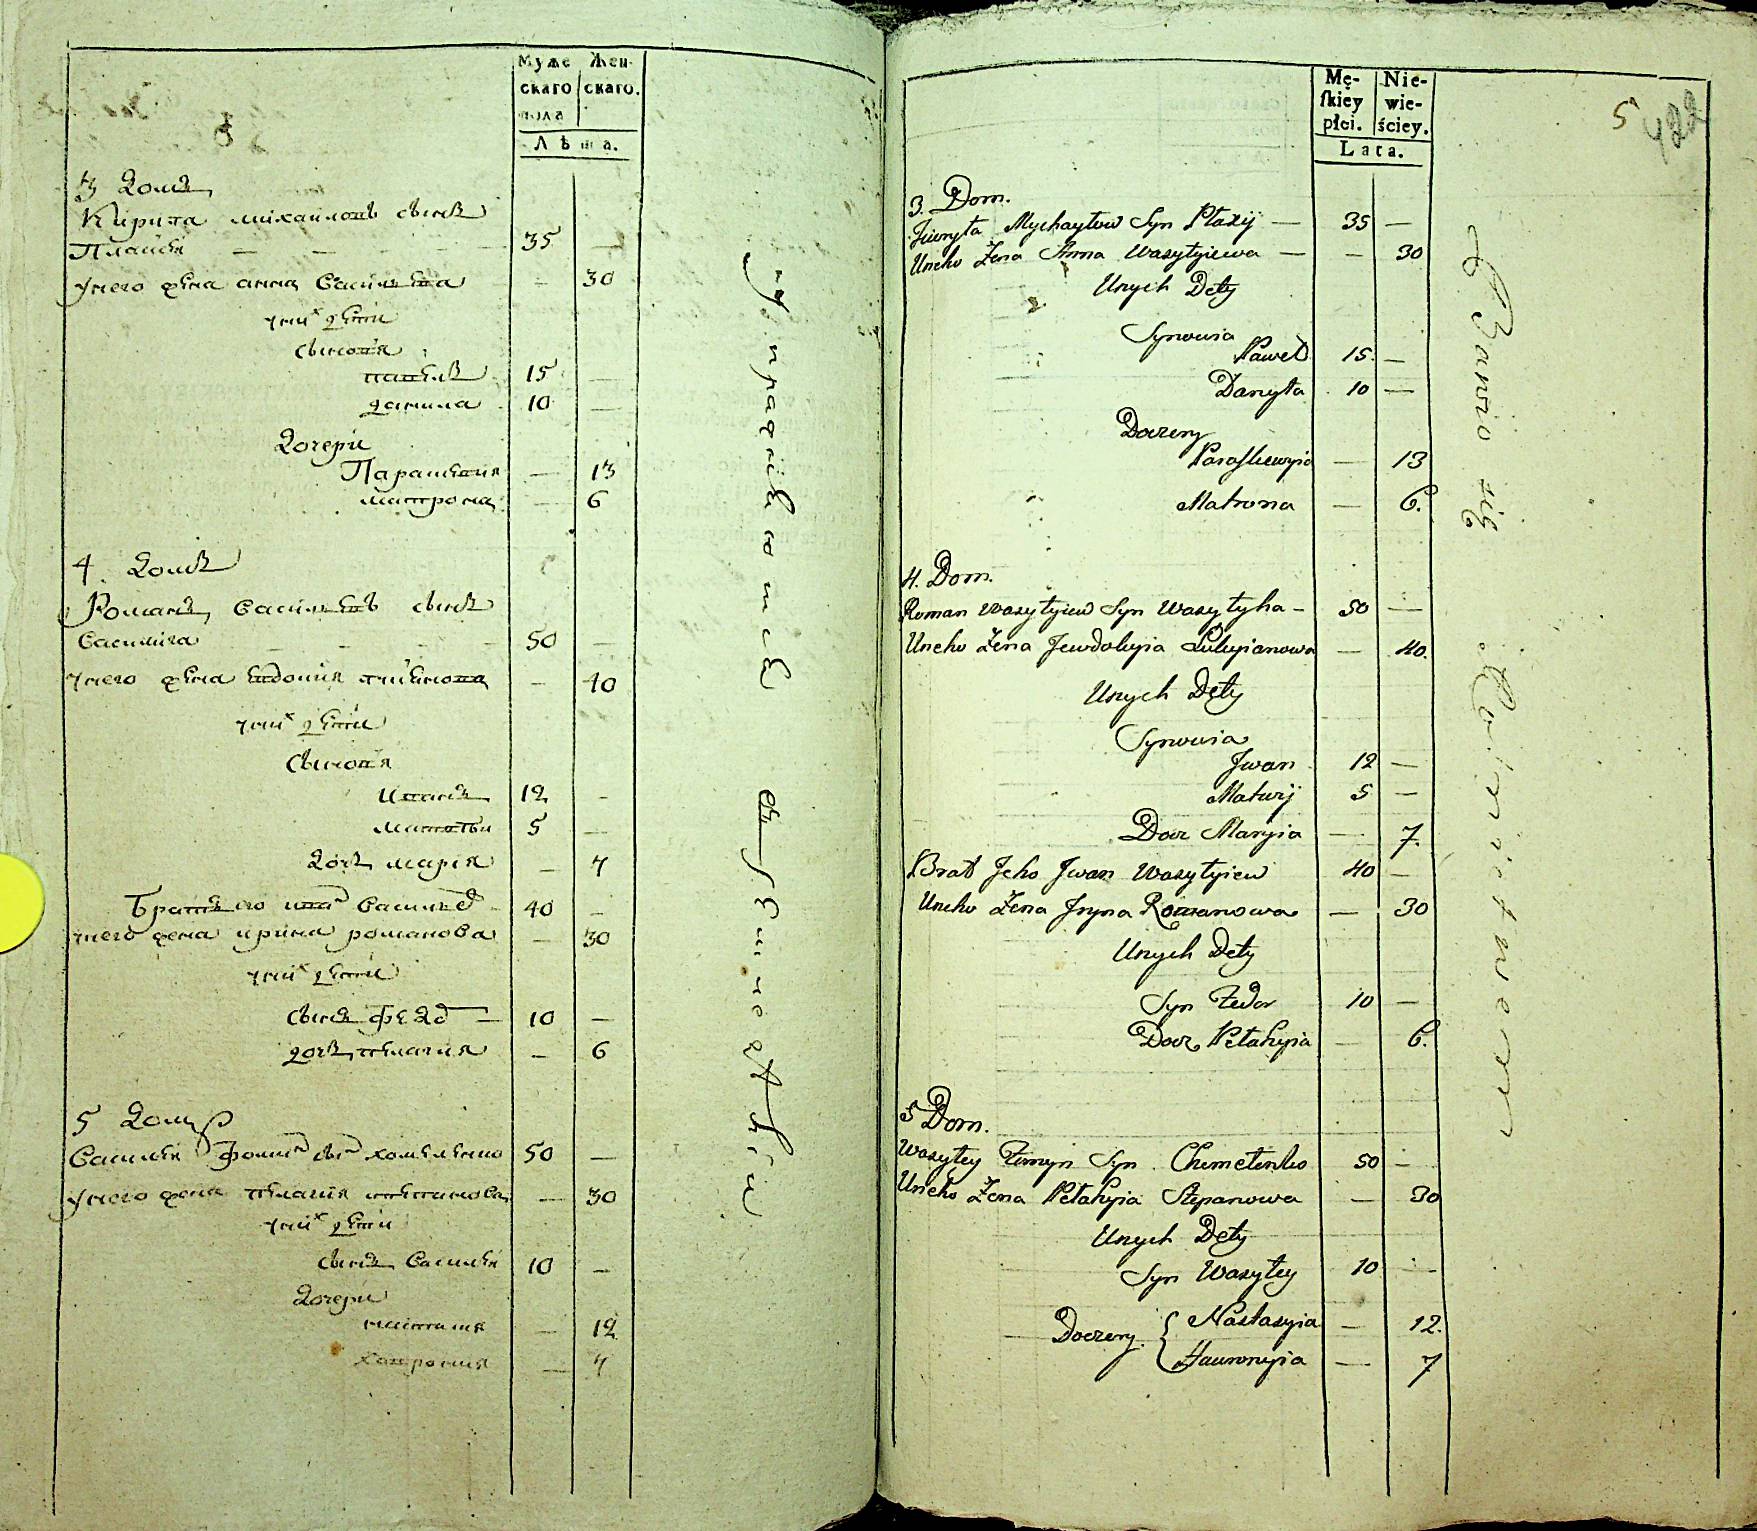 Муже
скаго
пола
Жен-
скаго.
Лѣта.
3 домъ
Кирила михайловъ сынъ
Плаксѣй — — 35 —
унего жена анна василиева — 30
унихъ дѣти
сыновя
павелъ 15 —
данила 10 —
дочери
Парасковия — 13
матрона — 6
4. домъ
Романъ василиевъ сынъ
василига 50 —
унего жена — 40
унихъ дѣти
сыновя
иванъ 12 —
матвѣй 5 —
дочъ мария — 7
братъ его иванъ василиевъ 40 —
унего жена ирина романова — 30
унихъ дѣти
сынъ федоръ 10 —
дочъ пелагия — 6
5 домъ
василей фоминъ сынъ 50 —
унего жена пелагия степанова — 30
унихъ дѣти
сынъ василей 10 —
дочери
настасия — 12
хаврония — 7
упражняются
в земледѣлии
Mę-
skiey
płci.
Nie-
wie-
ściey.
Lata.
5
422
3. Dom.
Mychayłow Syn 35 —
Uneho Żena Anna Wasylyiewa — — 30
Unych Dety
Synowia
Paweł 15. —
Danyła 10 —
Doczery
Paraskewyia — 13
Matrona — 6.
4. Dom.
Roman Wasylyiew Syn Wasylyha — 50 —
Uneho Żena Jewdokyia — 40.
Unych Dety
Synowia
Jwan 12 —
Matwij 5 —
Docz Maryia — 7.
Brat Jeho Jwan Wasylyiew 40 —
Uneho Żena Jryna Romanowa — 30
Unych Dety
Syn Fedor 10 —
Docz Pełahyia — 6.
5 Dom.
Wasyley Fomyn Syn Chomelenko 50 —
Uneho Żena Pełahyia Stepanowa — 30
Unych Dety
Syn Wasyley 10 —
Doczery { Nastasyia — 12.
Hawronyia — 7
Bawio się Rolnictwem